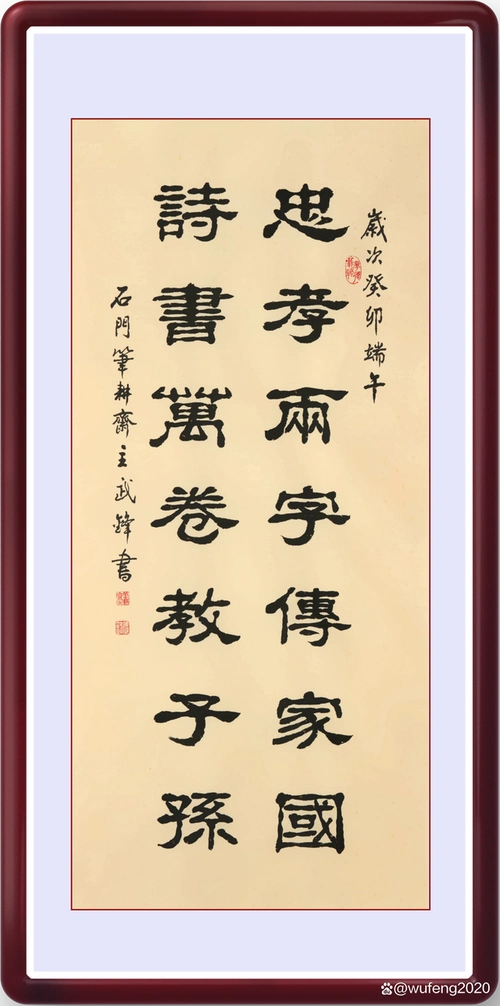 歲次癸卯端午
忠孝兩字傳家國
詩書萬卷教子孫
石門筆耕齋主武鋒書
@wufeng2020